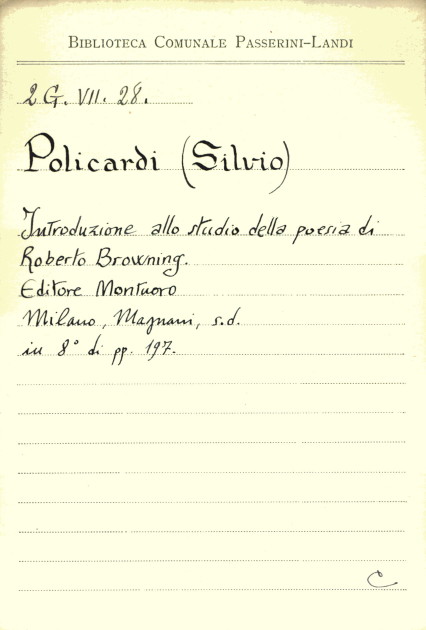 BIBLIOTECA COMUNALE PASSERINI-LANDI
2 G. VII. 28.
Policardi (Silvio)
Introduzione allo studio della poesia di
Roberto Browning.
Editore Montuoro
Milano, Magnani, s.d.
in 8° di pp. 197.
C